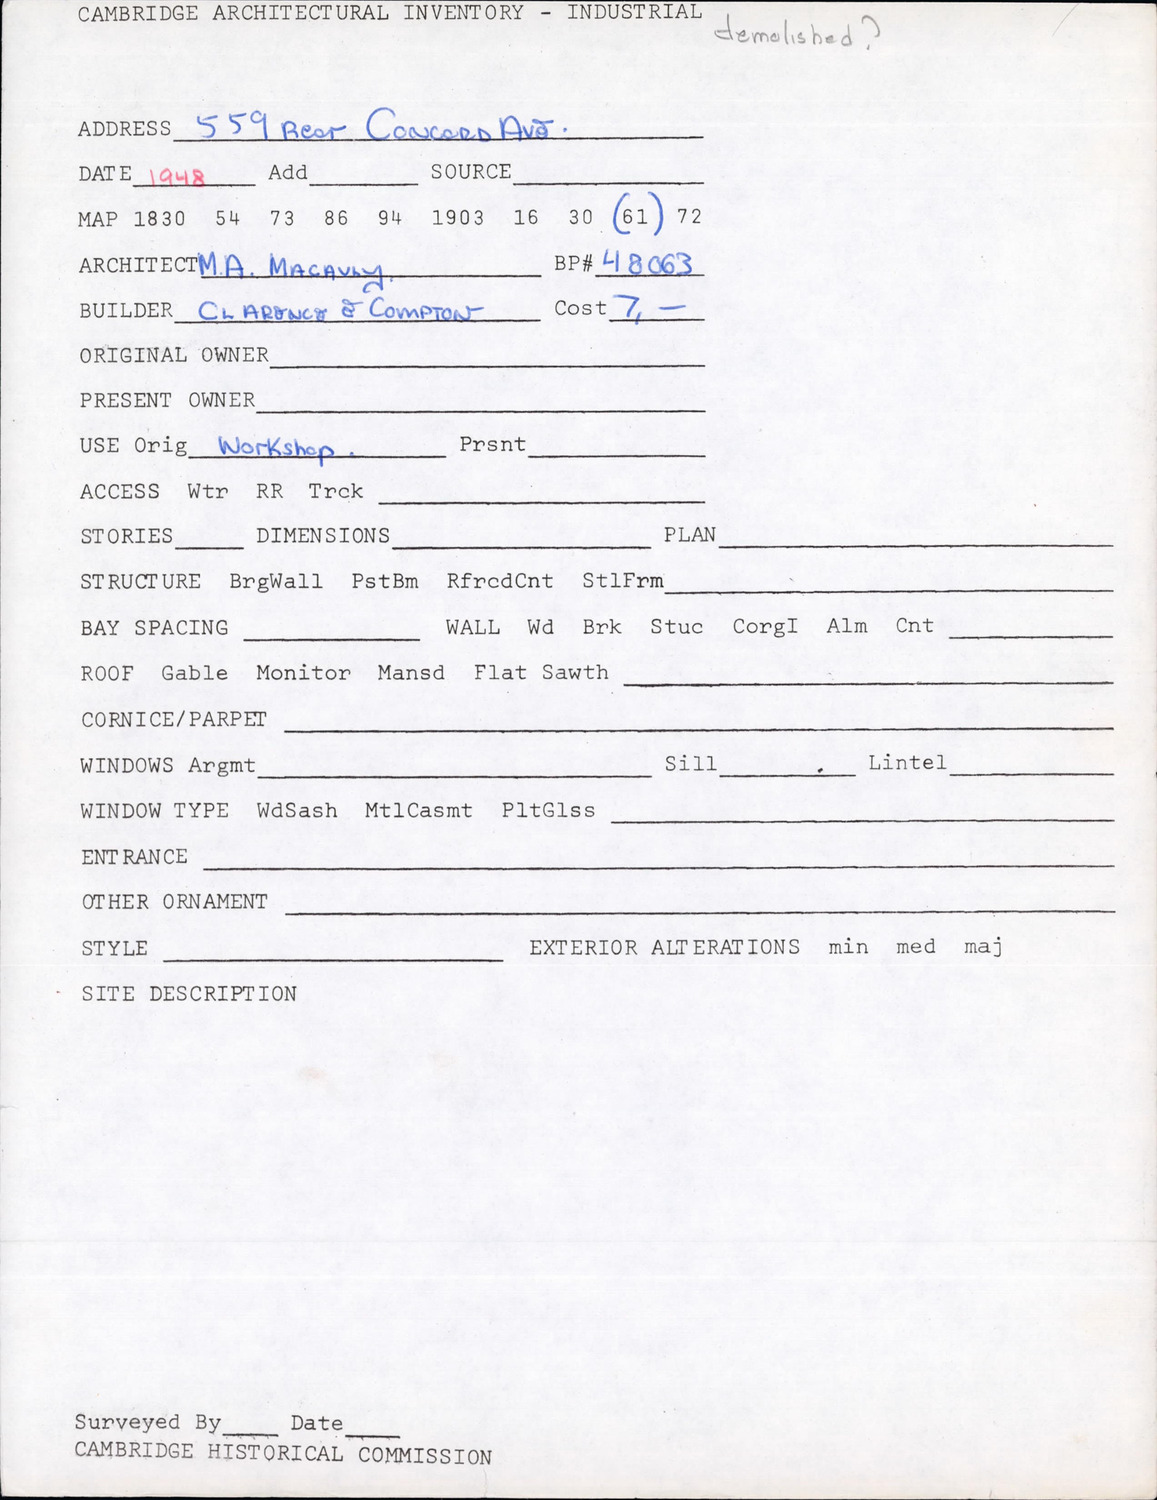 CAMBRIDGE ARCHITECTURAL INVENTORY - INDUSTRIAL
demolished?
ADDRESS 559 Rear Concord Ave.
DATE 1948 Add SOURCE
MAP 1830 54 73 86 94 1903 16 30 (61) 72
ARCHITECT M.A. Macauly. BP# 48063
BUILDER Clarence & Compton Cost 7,—
ORIGINAL OWNER
PRESENT OWNER
USE Orig Workshop. Prsnt
ACCESS Wtr RR Trck
STORIES DIMENSIONS PLAN
STRUCTURE BrgWall PstBm RfrcdCnt StlFrm
BAY SPACING WALL Wd Brk Stuc CorgI Alm Cnt
ROOF Gable Monitor Mansd Flat Sawth
CORNICE/PARPET
WINDOWS Argmt Sill Lintel
WINDOW TYPE WdSash MtlCasmt PltGlss
ENTRANCE
OTHER ORNAMENT
STYLE EXTERIOR ALTERATIONS min med maj
SITE DESCRIPTION
Surveyed By Date
CAMBRIDGE HISTORICAL COMMISSION